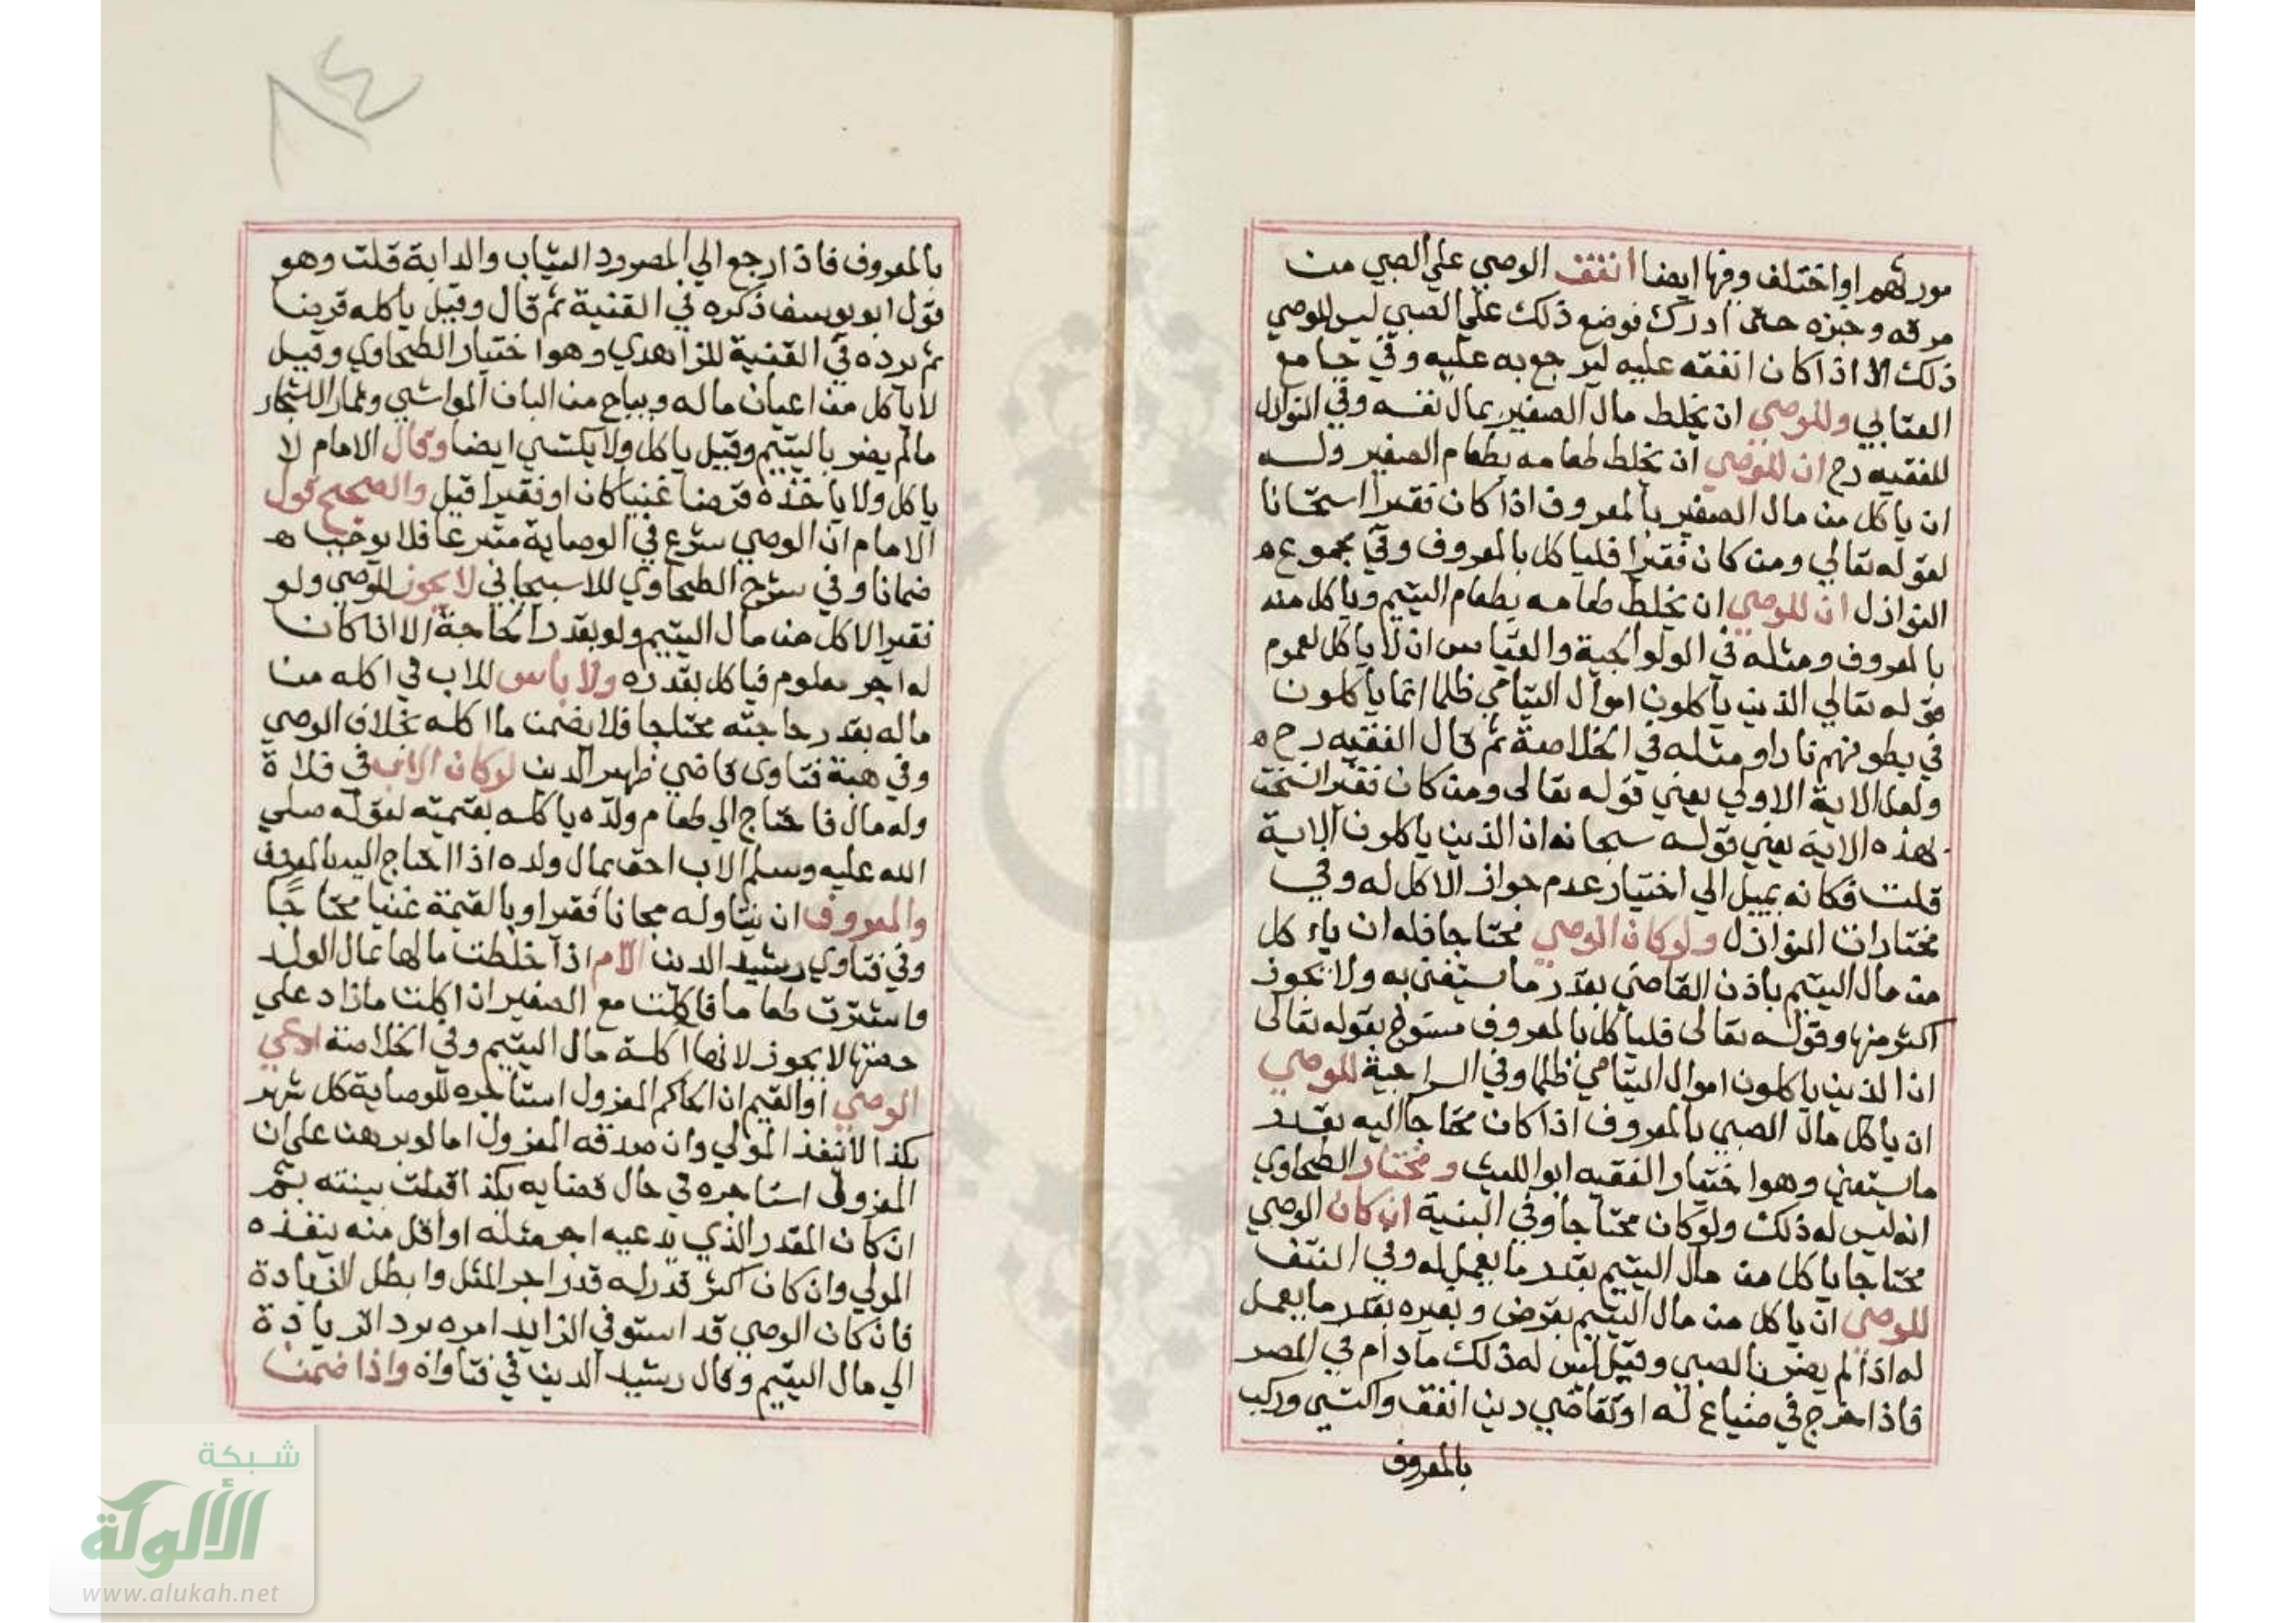 مورثهم او اختلف وفيها ايضا انفق الوصي علي الصبي من
مرقه وخبزه حتى ادرك فوضع ذلك علي الصبي ليس للوصي
ذلك الا اذا كان انفقه عليه ليرجع به عليه وفي جامع
العتابي وللوصي ان يخلط مال الصغير بمال نفسه وفي النوازل
للفقيه رح ان للوصي ان يخلط طعامه بطعام الصغير وله
ان ياكل من مال الصغير بالمعروف اذا كان فقيرا استحسانا
لقوله تعالي ومن كان فقيرا فلياكل بالمعروف وفي مجموع
النوازل ان للوصي ان يخلط طعامه بطعام اليتيم وياكل منه
بالمعروف ومثله في الولوالجية والقياس ان لا ياكل لعموم
قوله تعالي الذين ياكلون اموال اليتامي ظلما انما ياكلون
في بطونهم نارا ومثله في الخلاصة ثم قال الفقيه رح
ولعل الاية الاولي يعني قوله تعالى ومن كان فقيرا نسخت
بهذه الاية يعني قوله سبحانه ان الذين ياكلون الاية
قلت فكانه يميل الي اختيار عدم جواز الاكل له وفي
مختارات النوازل ولو كان الوصي محتاجا فله ان ياء كل
من مال اليتيم باذن القاضي بقدر ما يستغنى به ولا يجوز
اكثر منها وقوله تعالى فلياكل بالمعروف منسوخ بقوله تعالى
ان الذين ياكلون اموال اليتامي ظلما وفي السراجية للوصي
ان ياكل مال الصبي بالمعروف اذا كان محتاجا اليه بقدر
ما يستغني وهو اختيار الفقيه ابو الليث ومختار الطحاوي
انه ليس له ذلك ولو كان محتاجا وفي البنية ان كان الوصي
محتاجا ياكل من مال اليتيم بقدر ما يعمل له وفي النتف
للوصي ان ياكل من مال اليتيم بقرض وبغيره بقدر ما يعمل
له اذا لم يضر بالصبي وقيل ليس له ذلك ما دام في المصر
فاذا خرج في ضياع له او تقاضي دين انفق واكتسي وركب
بالمعروف
بالمعروف فاذا رجع الي المصر رد الثياب والدابة قلت وهو
قول ابو يوسف ذكره في القنية ثم قال وقيل ياكله قرضا
ثم يرده في القنية للزاهدي وهو اختيار الطحاوي وقيل
لا ياكل من اعيان ماله ويباح من البان المواشي وثمار الاشجار
مالم يضر باليتيم وقيل ياكل ولا يكتسي ايضا وقال الامام لا
ياكل ولا ياخذه قرضا غنيا كان او فقيرا قيل والصحيح قول
الامام ان الوصي شرع في الوصاية متبرعا فلا يوجب
ضمانا وفي شرح الطحاوي للاسبيجابي لا يجوز للوصي ولو
فقيرا الاكل من مال اليتيم ولو بقدر الحاجة الا اذا كان
له اجر معلوم فياكل بقدره ولا باس للاب في اكله من
ماله بقدر حاجته محتاجا فلا يضمن ما اكله بخلاف الوصي
وفي هبة فتاوى قاضي ظهير الدين لو كان الاب في فلاة
وله مال فاحتاج الي طعام ولده ياكله بقيمته لقوله صلي
الله عليه وسلم الاب احق بمال ولده اذا احتاج اليه بالمعروف
والمعروف ان يتناوله مجانا فقيرا وبالقيمة غنيا محتاجًا
وفي فتاوي رشيد الدين الام اذا خلطت مالها بمال الولد
واشترت طعاما فاكلت مع الصغير ان اكلت ما زاد علي
حصتها لا يجوز لانها اكلة مال اليتيم وفي الخلاصة ادعي
الوصي او القيم ان الحاكم المعزول استاجره للوصاية كل شهر
بكذا لا ينفذ المولي وان صدقه المعزول اما لو برهن على ان
المعزول استاجره في حال قضايه بكذا قبلت بينته ثم
ان كان المقدر الذي يدعيه اجر مثله او اقل منه ينفذه
المولي وان كان اكثر قدر له قدر اجر المثل وابطل الزيادة
فان كان الوصي قد استوفي الزايد امره برد الزيادة
الي مال اليتيم وقال رشيد الدين في فتاواه واذا ضمن
شبكة
الألوكة
www.alukah.net